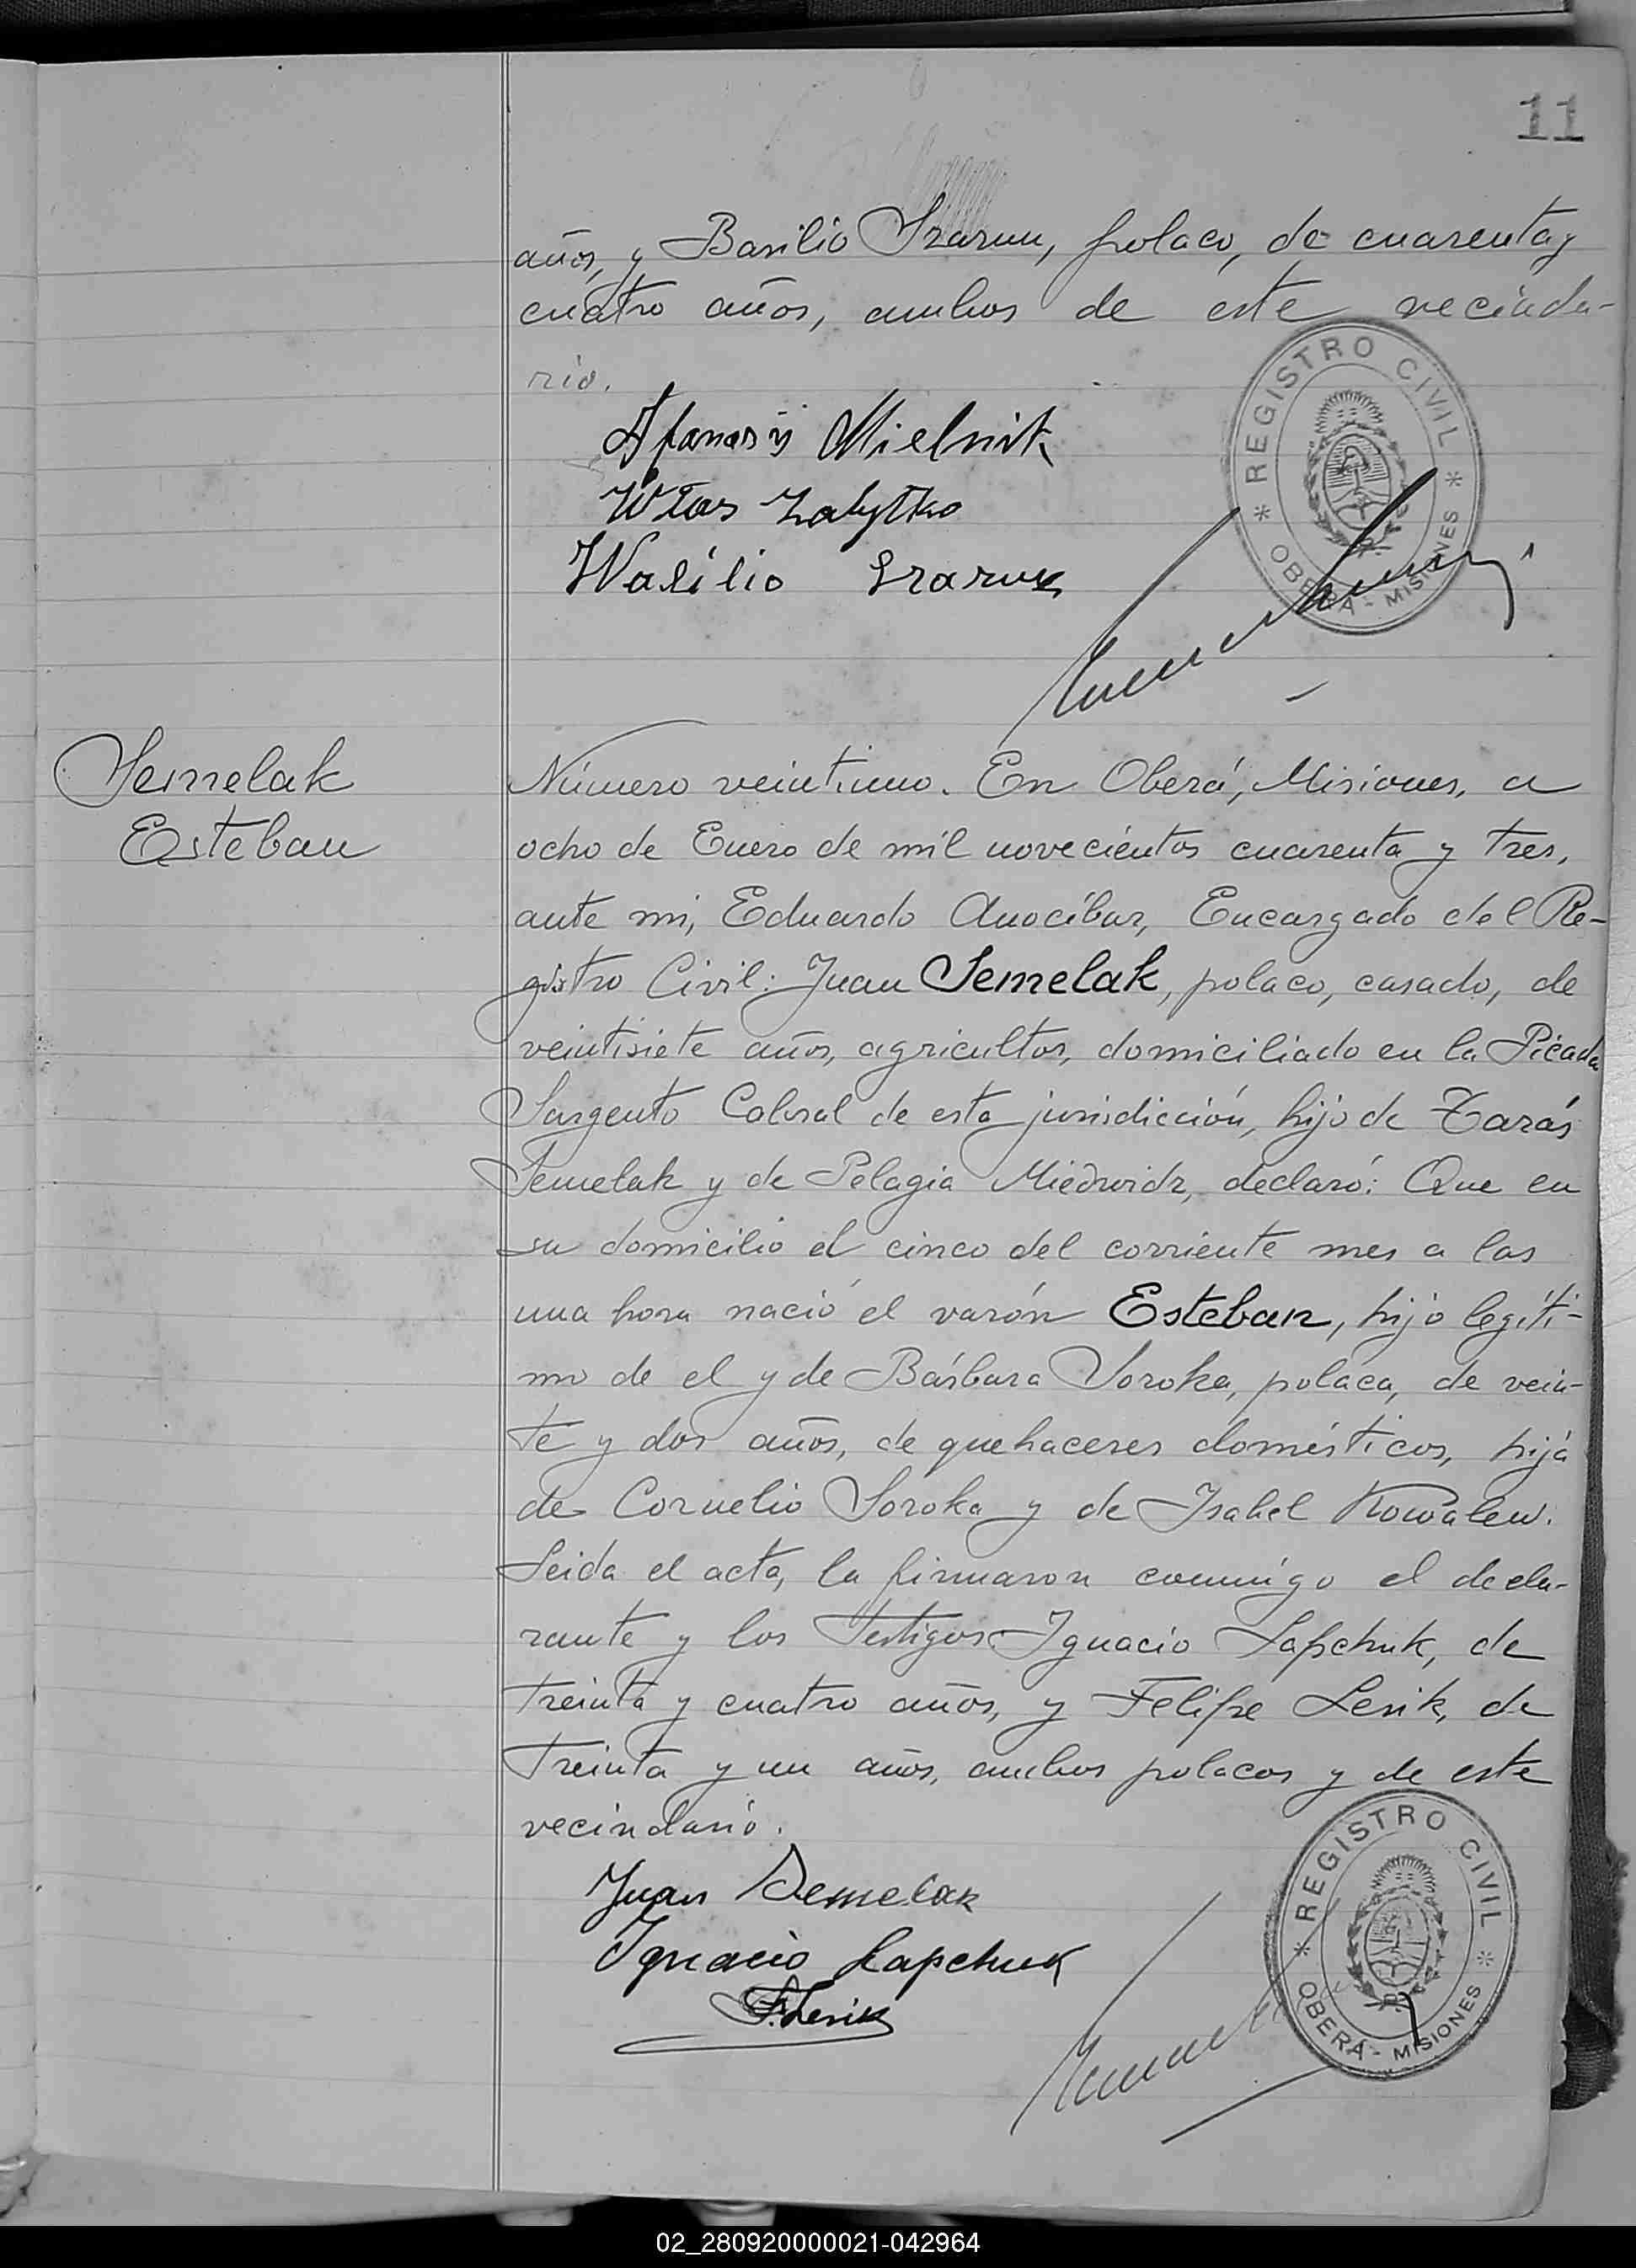 11
años, y Basilio Szaruu, polaco, de cuarenta y
cuatro años, ambos de este vecinda-
rio.
Afanasij Mielnik
Wlas Zalytko
Wasilio Szaruk
REGISTRO CIVIL
OBERÁ - MISIONES
Semelak
Esteban
Número veintiuno. En Oberá, Misiones, a
ocho de Enero de mil novecientos cuarenta y tres,
ante mi, Eduardo Anocíbar, Encargado del Re-
gistro Civil: Juan Semelak, polaco, casado, de
veintisiete años, agricultor, domiciliado en la Picada
Sargento Cabral de esta jurisdicción, hijo de Tarás
Semelak y de Pelagia Miedwidz, declaró: Que en
su domicilio el cinco del corriente mes a las
una hora nació el varón Esteban, hijo legíti-
mo de el y de Bárbara Soroka, polaca, de vein-
te y dos años, de quehaceres domésticos, hija
de Cornelio Soroka y de Isabel Kowalew.
Leida el acta, la firmaron conmigo el decla-
rante y los testigos: Ignacio Lapchuk, de
treinta y cuatro años, y Felipe Lesik, de
treinta y un años, ambos polacos y de este
vecindario.
Juan Semelak
Ignacio Lapchuk
F. Lesik
REGISTRO CIVIL
OBERÁ - MISIONES
02_280920000021-042964